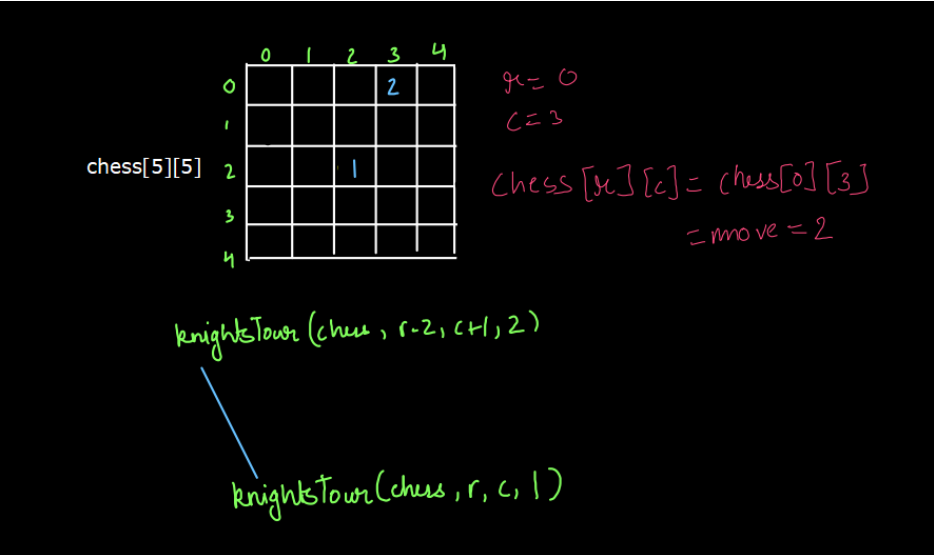 0 1 2 3 4
0 2 r = 0
1 c = 3
chess[5][5] 2 1 chess[r][c] = chess[0][3]
3 = move = 2
4
knightsTour(chess, r-2, c+1, 2)
knightsTour(chess, r, c, 1)